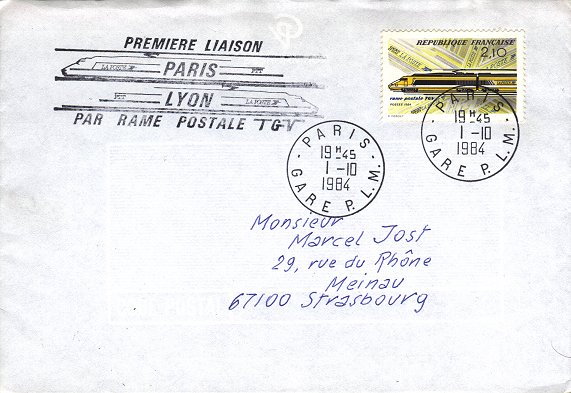 PREMIERE LIAISON
LA POSTE PARIS
LYON LA POSTE
PAR RAME POSTALE TGV
REPUBLIQUE FRANÇAISE
2,10
LA POSTE
rame postale TGV
POSTES 1984
PARIS
19 H 45
1 -10
1984
GARE P.L.M.
PARIS
19 H 45
1 -10
1984
GARE P.L.M.
Monsieur
Marcel Jost
29, rue du Rhône
Meinau
67100 Strasbourg